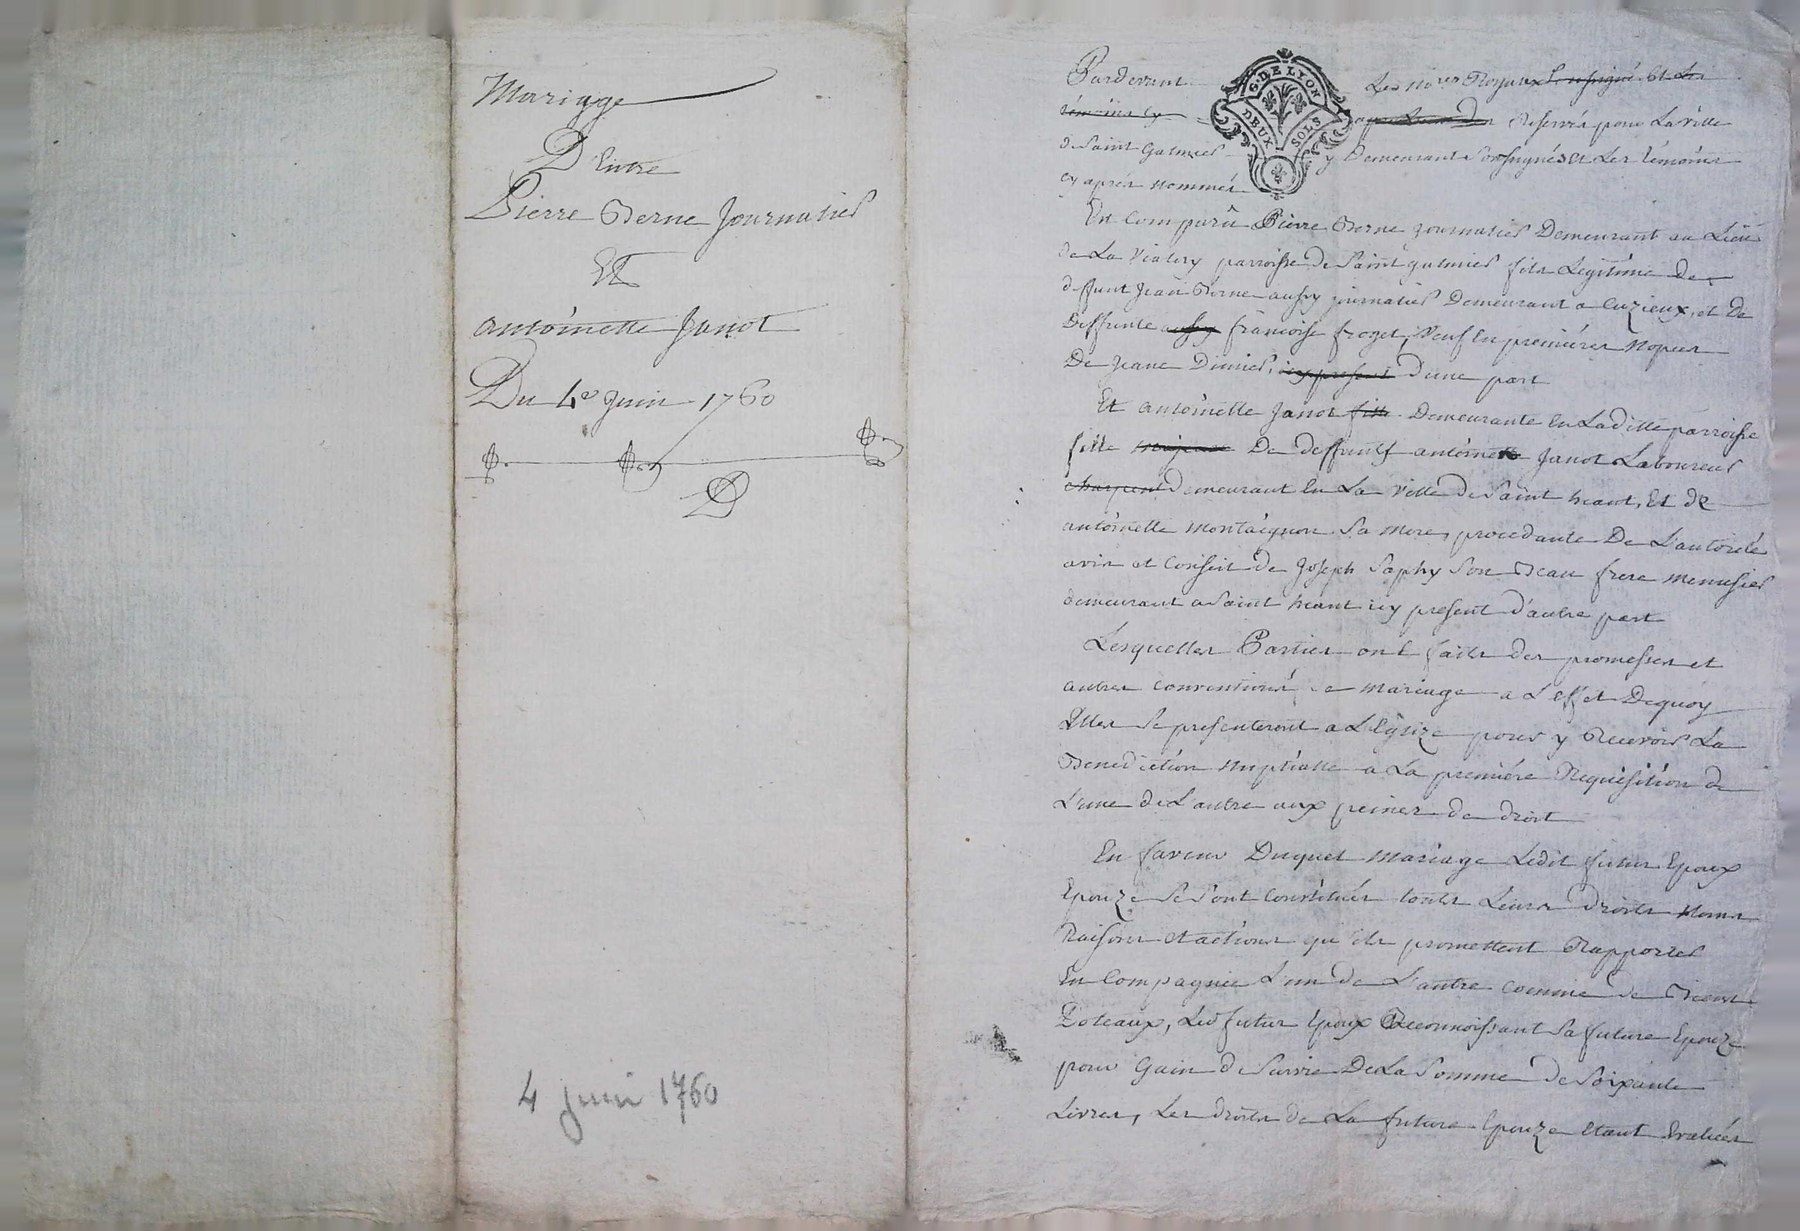 Mariage
D'Entre
Pierre Berne Journalier
Et
antoinette Janot
Du 4e Juin 1760
4 juin 1760
G. DE LYON
DEUX SOLS
Pardevant Les no.res Royaux soussigné Et Les
témoins cy reservés pour La ville
de Saint Galmier y Demeurant Soussignés et Les témoins
cy après nommés
Est Comparû Pierre Berne journalier Demeurant au Lieu
de La Vialery parroisse de Saint galmier fils Legitime De
deffunt Jean Berne aussy journalier Demeurant a Cuzieux, et De
Deffunte aussy françoise froget, Veuf En premières nopces
De Jeane Dimier, icy present D'une part
Et antoinette Janot fille Demeurante En Ladite parroisse
fille majeure De deffunts antoine Janot Laboureur
charpent demeurant En La Ville de Saint heant, Et de
antoinette Montaignon Sa Mere, procedante De L'autorité
avis et Conseil de Joseph Saphy Son Beau frere Menusier
demeurant a Saint heant icy present d'autre part
Lesquelles Parties ont faits des promesses et
autres conventions de mariage a L'effet Dequoy
Elles se presenteront a L'Eglize pour y Recevoir La
Benediction Nuptialle a La première Requisition de
L'une de L'autre aux peines de droit
En faveur Duquel Mariage Ledit futur Epoux
Epouze se sont Constitués touts Leurs droits Noms
Raisons et actions qu'ils promettent Rapporter
En Compagnie L'un de L'autre comme de Biens
Doteaux, Led futur Epoux Reconnoissant Sa future Epouze
pour Gain de Survie De La Somme de Soixante
Livres, Les droits de La future Epouze Etant Evalués